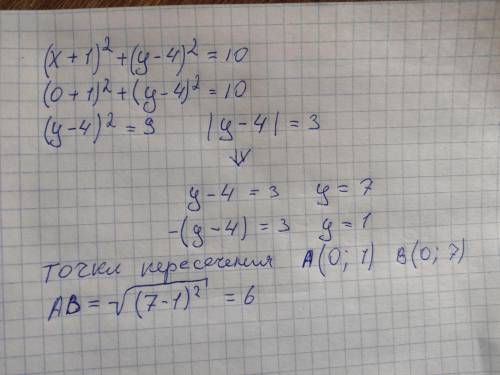 (x+1)² + (y-4)² = 10
(0+1)² + (y-4)² = 10
(y-4)² = 9 |y-4| = 3
⇓
y-4 = 3 y = 7
-(y-4) = 3 y = 1
точки пересечения A(0; 1) B(0; 7)
AB = √(7-1)² = 6